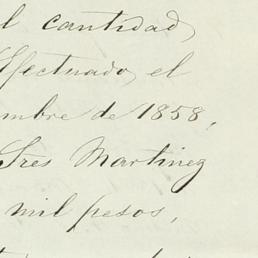 l cantidad
Efectuado, el
mbre de 1858,
Sres Martinez
mil pesos,